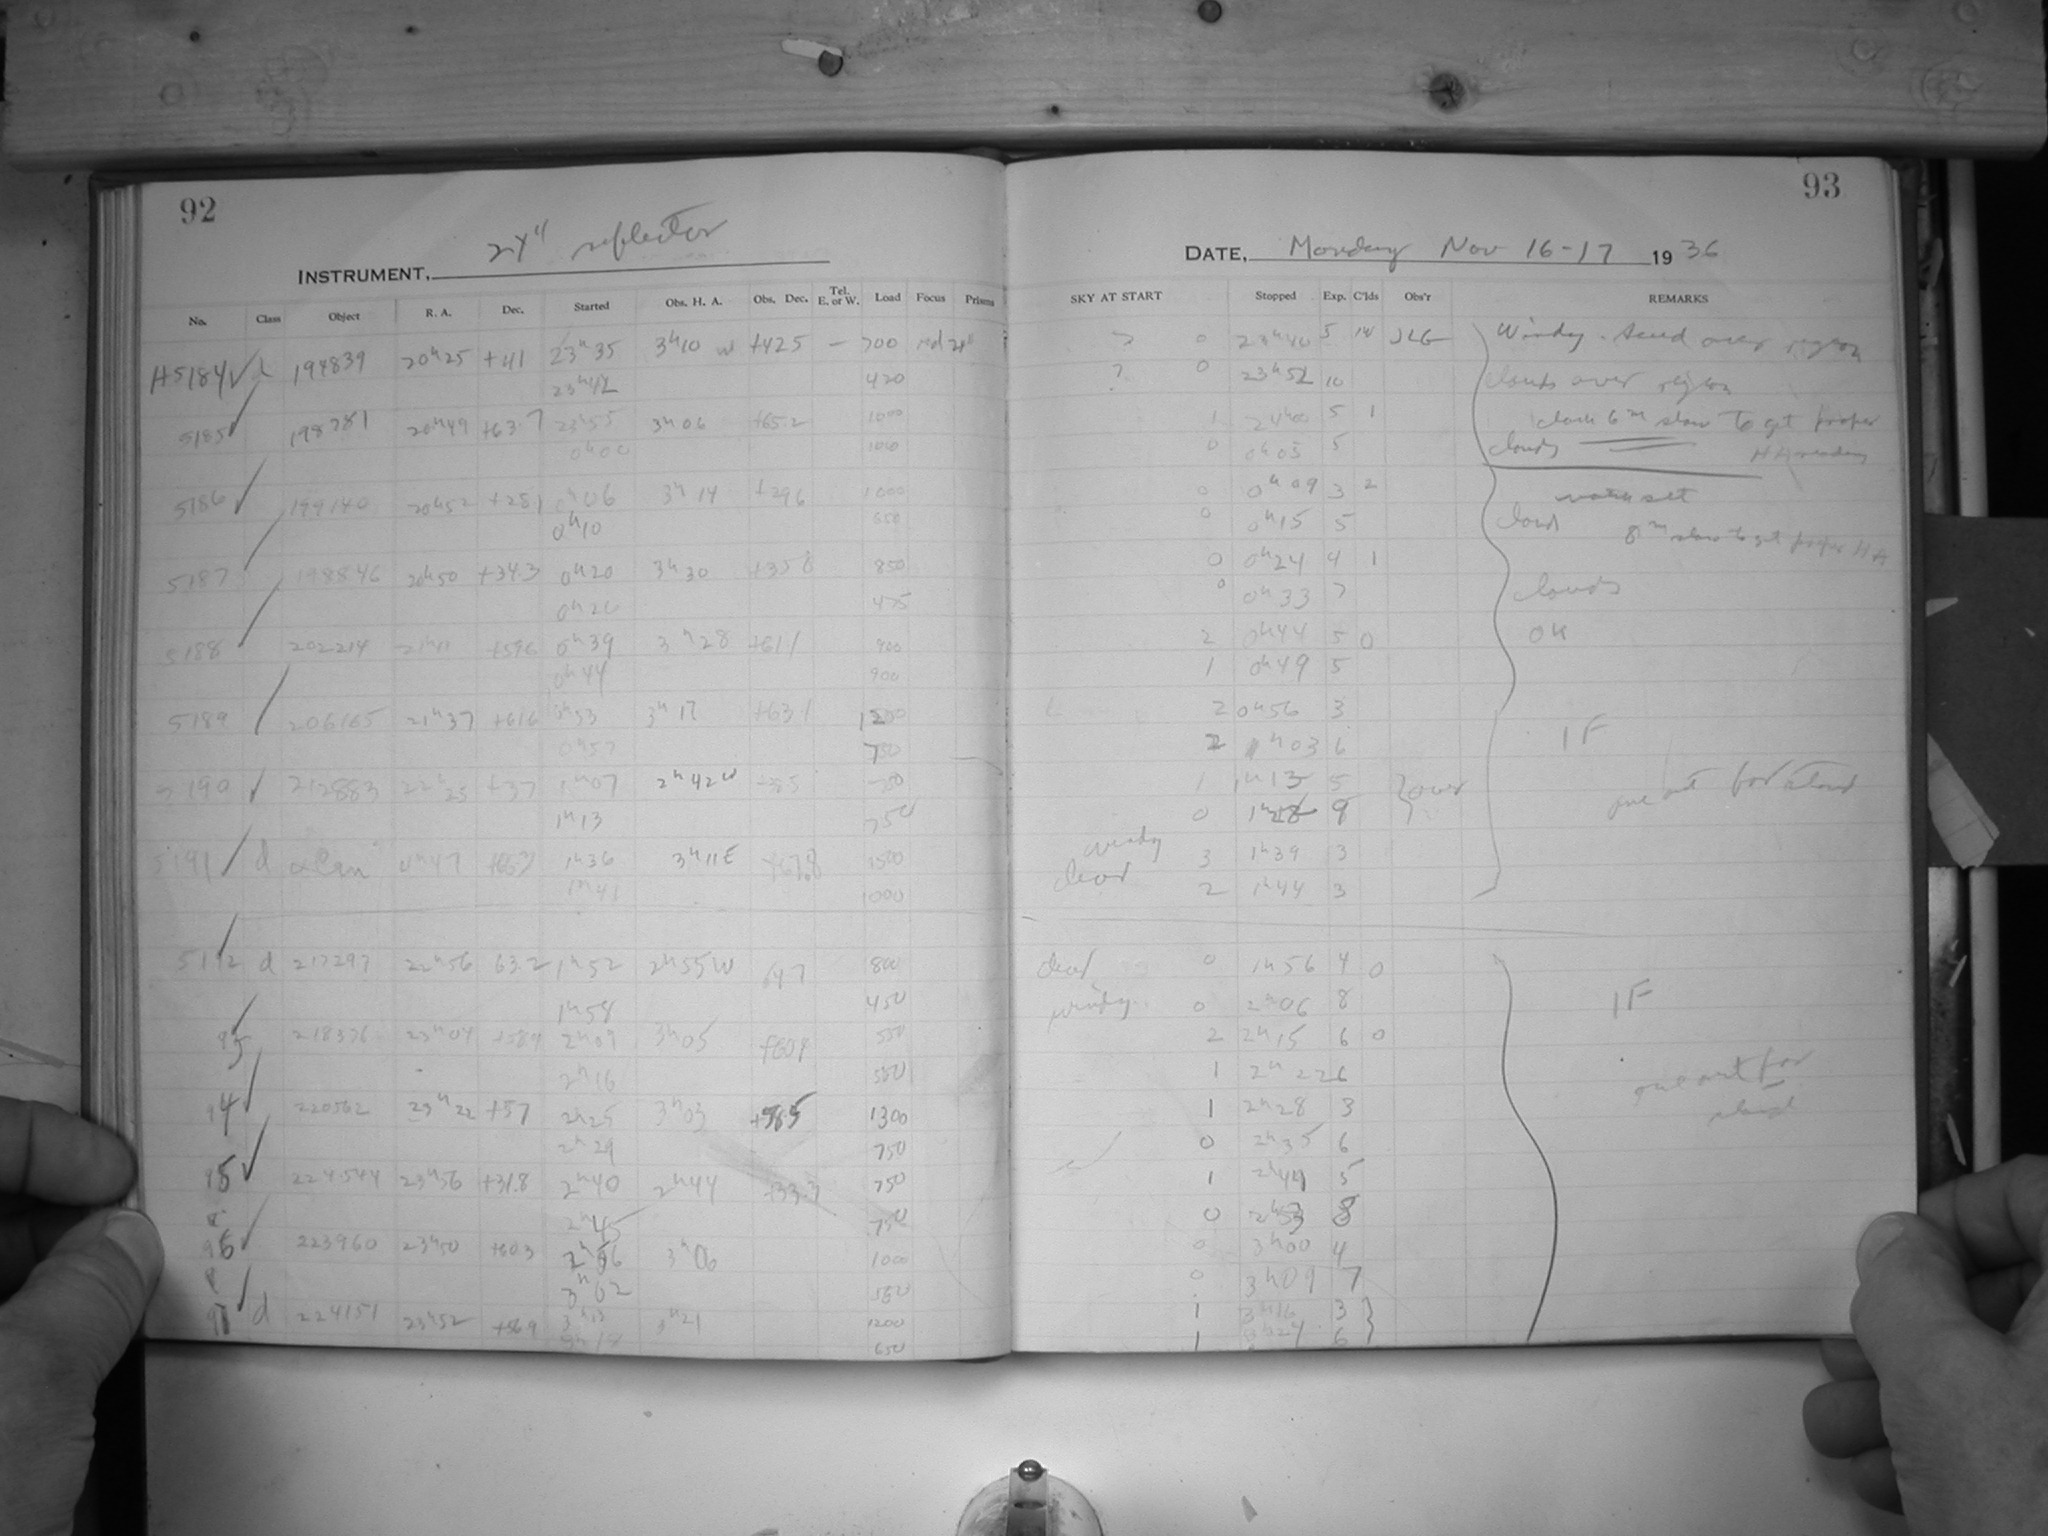 92
24" reflector
INSTRUMENT,
No. Class Object R. A. Dec. Started Obs. H. A. Obs. Dec. Tel. E. or W. Load Focus Prisms
H5184 194839 20h25 +41 23h35 3h10 W +42.5 — 700
23h42 420
5185 198781 20h49 +63.7 23h55 3h06 +65.2 1000
0h00 1000
5186 199140 20h52 +28.1 0h06 3h14 +29.6 1000
0h10 650
5187 198846 20h50 +34.3 0h20 3h30 850
0h26 475
5188 202214 21h11 +59.6 0h39 3h28 +61.1 900
0h44 900
5189 206165 21h37 +61.6 3h17 +63.1
0h57 750
5190 212883 22h25 +37 1h07 2h42W
1h13 750
5191 d α Cam 4h47 +66.3 1h36 3h11E 1500
1h41 1000
5192 d 217297 22h56 63.2 1h52 2h55W 647 800
1h58 450
218376 23h04 +58.9 2h09 3h05 550
2h16 550
94 220562 23h22 +57 2h25 3h03 +58.5 1300
2h29 750
95 224544 23h56 +31.8 2h40 2h44 750
2h45 750
96 223960 23h50 +60.3 2h56 3h06 1000
3h02 550
97 d 224151 23h52 +56.9 3h13 3h21 1200
3h18 650
93
DATE, Monday Nov 16-17 1936
SKY AT START Stopped Exp. C'lds Obs'r REMARKS
? 0 23h40 5 10 JLG Windy. Scud over region
? 0 23h52 10 clouds over region
1 24h00 5 1 clock 6m slow to get proper
0 0h05 5 clouds HA reading
0 0h09 3 2 watch set
0 0h15 5 cloud 8m slow to get proper HA
0 0h24 4 1
0 0h33 7 clouds
2 0h44 5 0 OK
1 0h49 5
2 0h56 3
2 1h03 6 1F
1 1h13 5 over one out for stand
0 9
windy 3 1h39 3
clear 2 1h44 3
clear 0 1h56 4 0
windy. 0 2h06 8 1F
2 2h15 6 0
1 2h22 6 one out for
1 2h28 3 stand
0 2h35 6
1 2h44 5
0 2h53 8
0 3h00 4
0 3h09 7
1 3h16 3
1 3h24 6